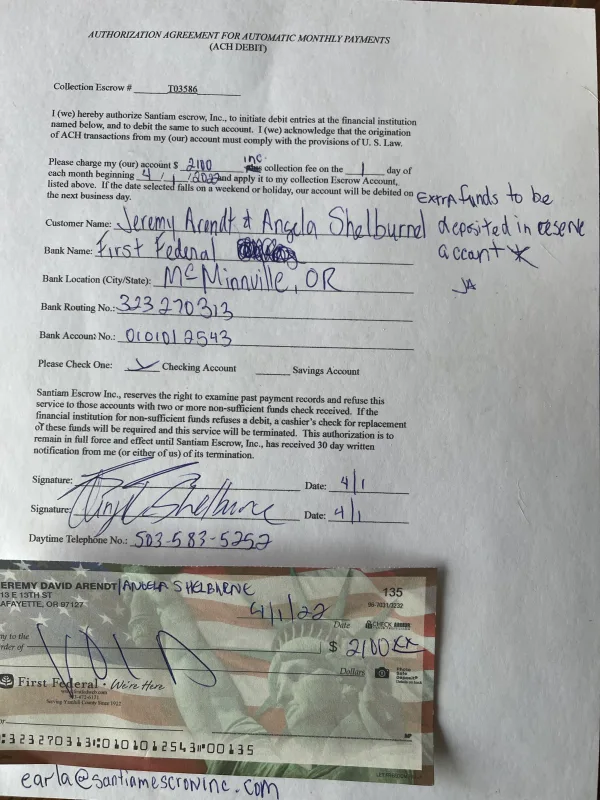 AUTHORIZATION AGREEMENT FOR AUTOMATIC MONTHLY PAYMENTS
(ACH DEBIT)
Collection Escrow # T03586
I (we) hereby authorize Santiam escrow, Inc., to initiate debit entries at the financial institution
named below, and to debit the same to such account. I (we) acknowledge that the origination
of ACH transactions from my (our) account must comply with the provisions of U. S. Law.
Please charge my (our) account $ 2100 inc. collection fee on the 1 day of
each month beginning 4/1/2022 and apply it to my collection Escrow Account,
listed above. If the date selected falls on a weekend or holiday, our account will be debited on
the next business day.
EXTRA funds to be
deposited in reserve
accant *
JA
Customer Name: Jeremy Arendt & Angela Shelburne
Bank Name: First Federal
Bank Location (City/State): McMinnville, OR
Bank Routing No.: 323270313
Bank Account No.: 0101012543
Please Check One: Checking Account Savings Account
Santiam Escrow Inc., reserves the right to examine past payment records and refuse this
service to those accounts with two or more non-sufficient funds check received. If the
financial institution for non-sufficient funds refuses a debit, a cashier's check for replacement
of these funds will be required and this service will be terminated. This authorization is to
remain in full force and effect until Santiam Escrow, Inc., has received 30 day written
notification from me (or either of us) of its termination.
Signature: Date: 4/1
Signature: Angela Shelburne Date: 4/1
Daytime Telephone No.: 503-583-5252
EREMY DAVID ARENDT/ANGELA SHELBURNE
13 E 13TH ST
AFAYETTE, OR 97127
135
96-7031/3232
4/1/22
Date
CHECK ARMOR
ay to the
rder of
VOID
$ 2100 xx
Dollars
First Federal • We're Here
Serving Yamhill County Since 1922
or
:323270313: 0101012543" 00135
earla@santiamescrowinc.com